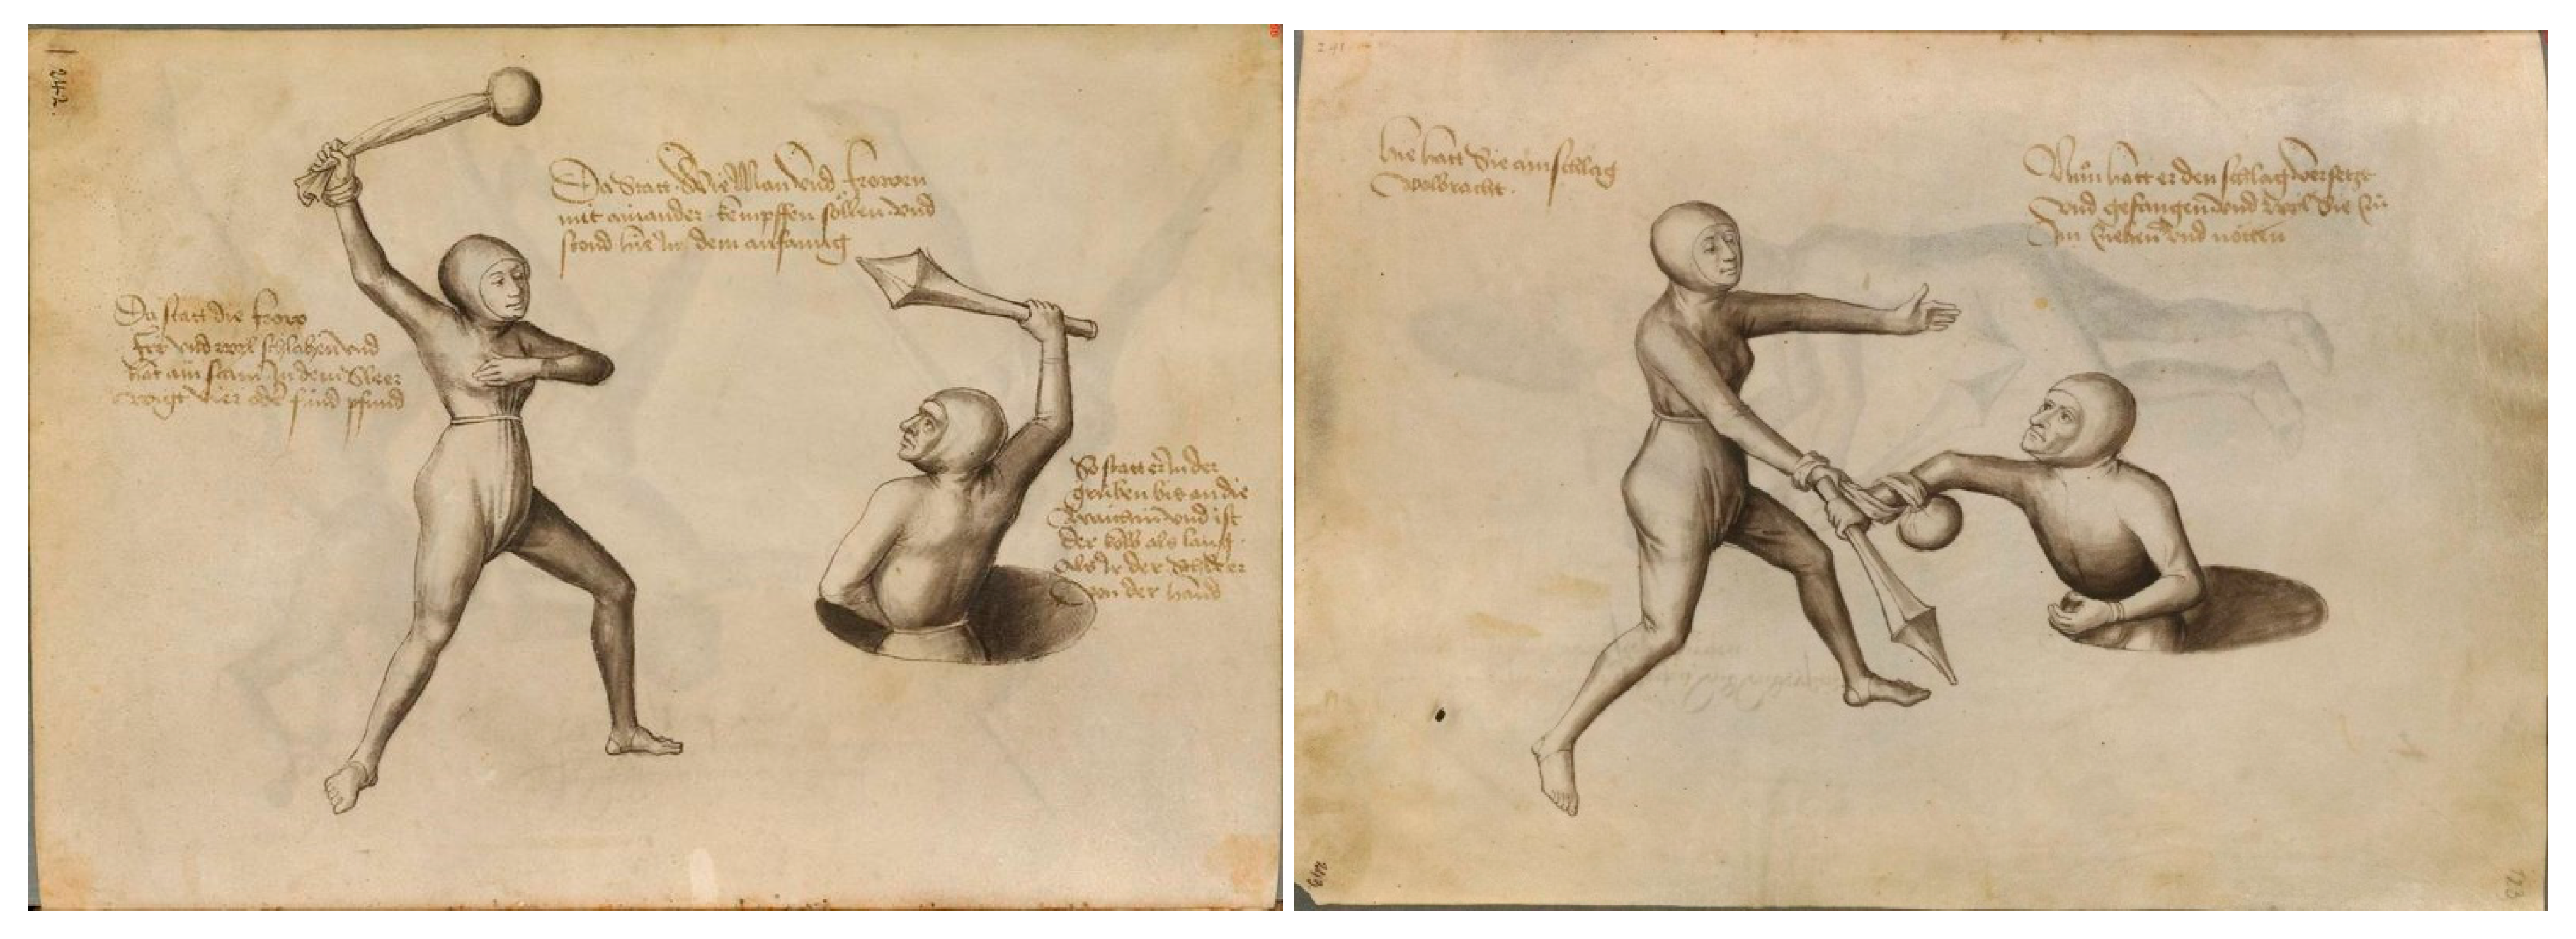 242.
Da Statt Wie Man vnd frowen
mit ainander kempffen söllen vnd
stond hie In dem anfang
Da statt die frow
fry vnd wyl schlahen vnd
hat ain stain In dem Sleer
wigt vier oder fünf pfund
So statt er In der
gruben bis an die
waichin vnd ist
der kolb als lang
Als Ir der Schleer
von der hand
241
hie hatt Sie ain schlag
volbracht.
Nun hatt er den schlag versetzt
vnd gefangen vnd wyl Sie zu
Im ziehen vnd nötten
243
123